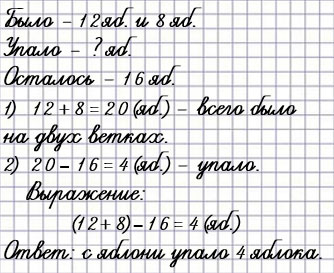 Было – 12яб. и 8 яб.
Упало – ? яб.
Осталось – 16яб.
1) 12+8=20(яб.) – всего было
на двух ветках.
2) 20–16=4(яб.) – упало.
Выражение:
(12+8)–16=4(яб)
Ответ: с яблони упало 4 яблока.